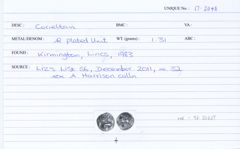 UNIQUE No.: 17-2048
DESC: Corieltavi BMC: VA:
METAL/DENOM: AR plated Unit WT (grams): 1.31 ABC:
FOUND: Kirmington, Lincs, 1983
SOURCE: Liz's List 56, December 2011, no. 52
ex A Harrison colln